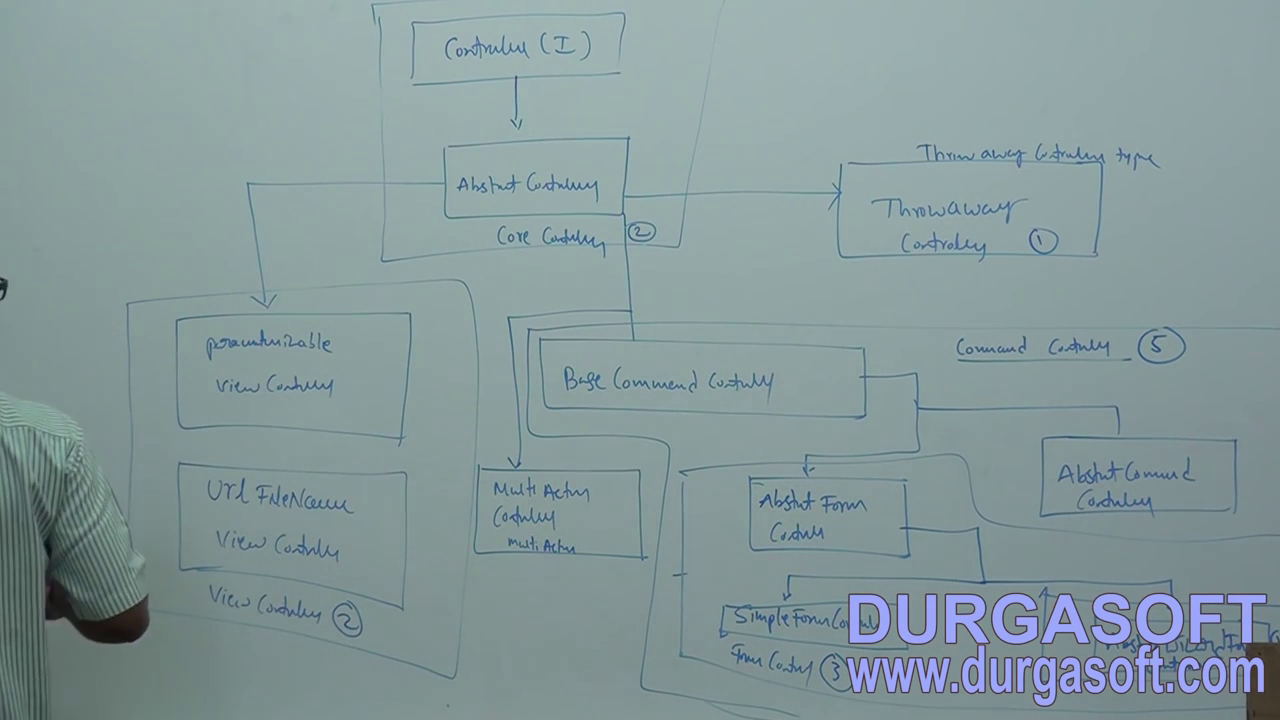 Controller (I)
Abstract Controller
Core Controller 2
Throwaway Controller type
Throwaway
Controller 1
parameterizable
View Controller
Url FileName
View Controller
View Controller 2
Command Controller 5
Base Command Controller
Multi Action
Controller
multi Action
Abstract Form
Controller
Abstract Command
Controller
Simple Form Controller
Form Control 3
DURGASOFT
www.durgasoft.com